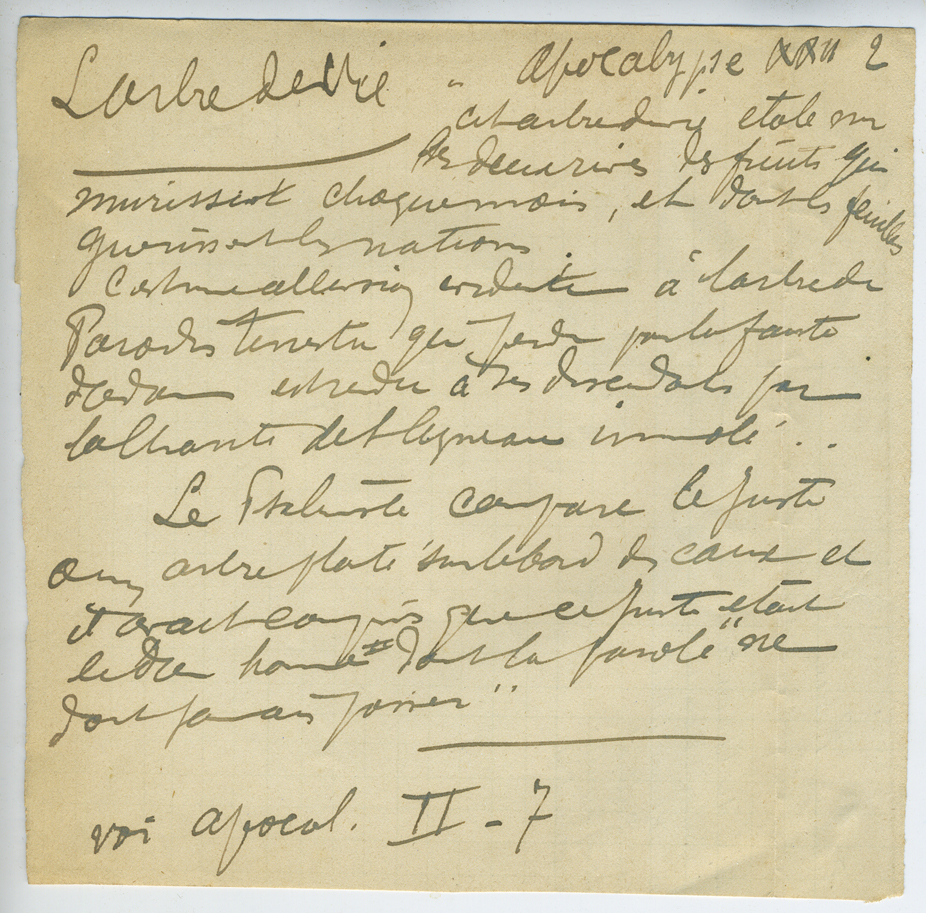 L'arbre de Vie " Apocalypse XXII 2
cet arbre de vie étale sur
les deux rives des fruits qui
murissent chaque mois, et dont les feuilles
guérissent les nations.
C'est une allusion évidente à l'arbre du
Paradis Terrestre qui perdu par la faute
d'Adam est rendu à ses descendants par
la Charité de l'Agneau immolé ..
Le Psalmiste compare le juste
à un arbre planté sur le bord des eaux et
il avait compris que ce juste était
le Dieu homme dont la parole "ne
doit jamais passer"
voir Apocal. II - 7